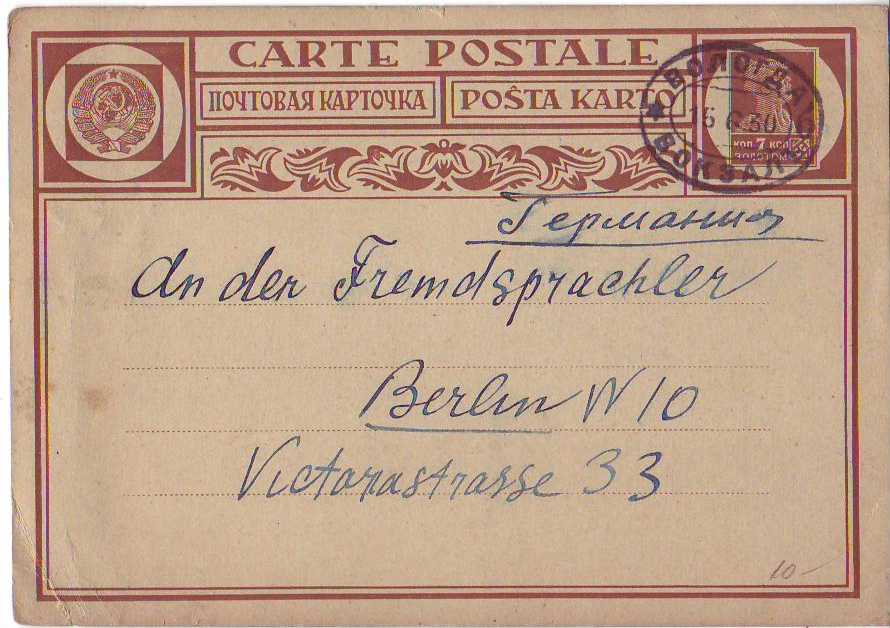 CARTE POSTALE
ПОЧТОВАЯ КАРТОЧКА
POŜTA KARTO
ВОЛОГДА
ВОКЗАЛ
КОП. 7 КОП.
ЗОЛОТОМ
Германия
An der Fremdsprachler
Berlin W 10
Victoriastrasse 33
10-